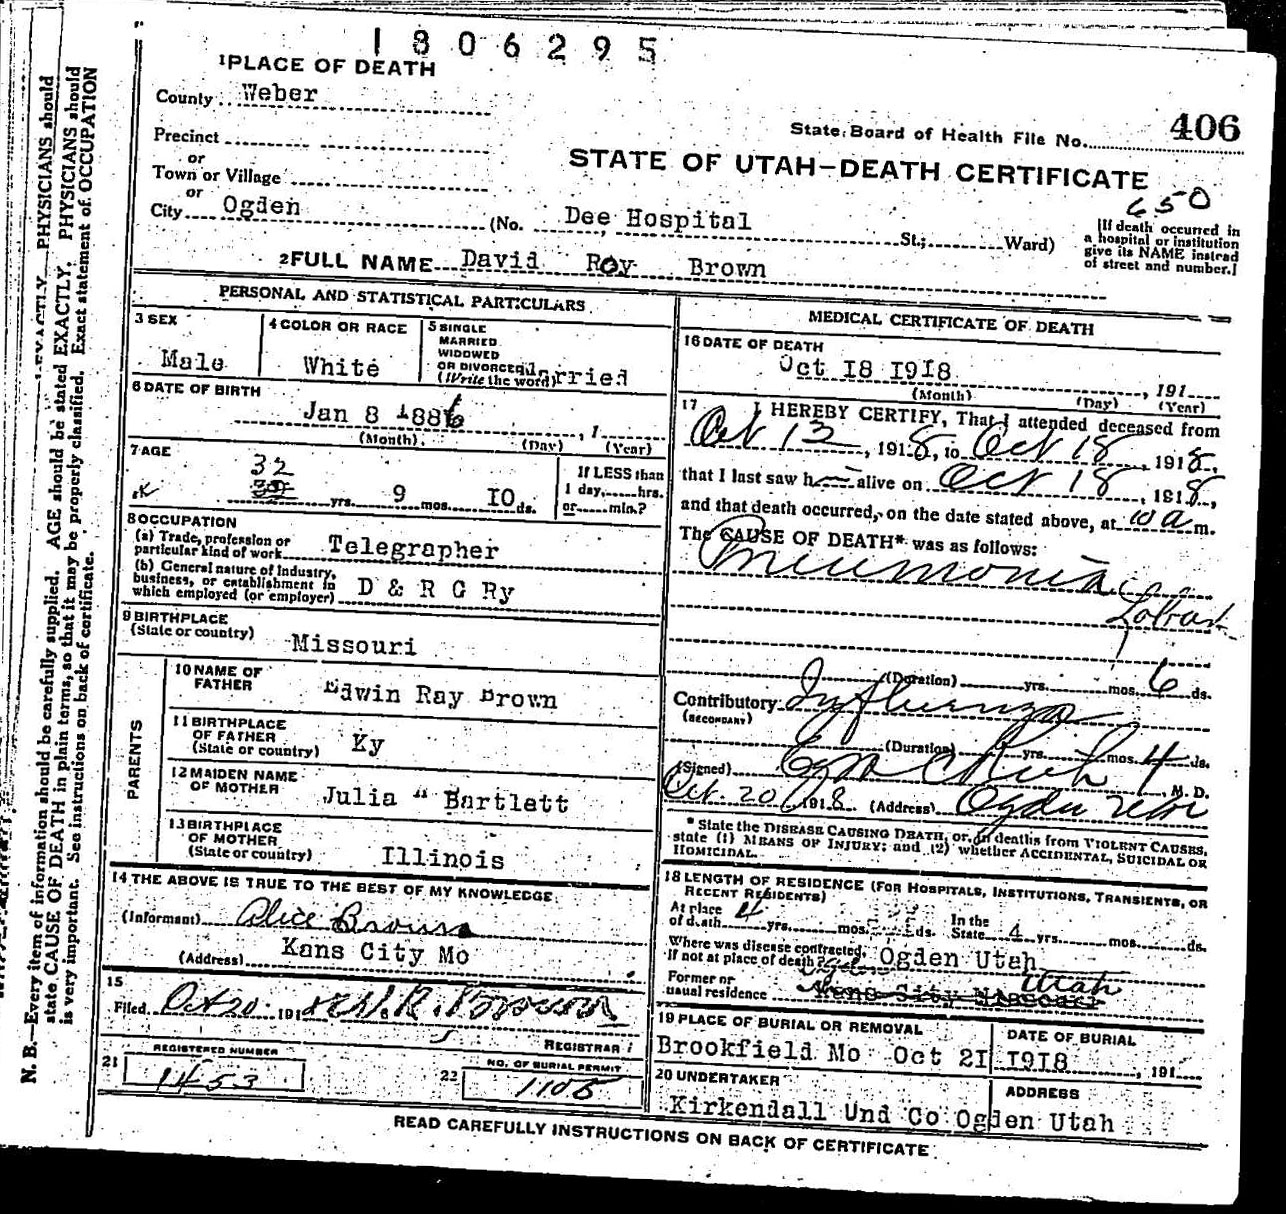 1806295
1 PLACE OF DEATH
County Weber
State Board of Health File No. 406
Precinct
or
Town or Village
or
City Ogden (No. Dee Hospital St.; Ward)
STATE OF UTAH—DEATH CERTIFICATE
650
[If death occurred in
a hospital or institution
give its NAME instead
of street and number.]
2 FULL NAME David Roy Brown
PERSONAL AND STATISTICAL PARTICULARS
3 SEX
Male
4 COLOR OR RACE
White
5 SINGLE
MARRIED
WIDOWED
OR DIVORCED
(Write the word)
rried
6 DATE OF BIRTH
Jan 8 1886
(Month) (Day) , 1 (Year)
7 AGE
32
yrs. 9 mos. 10 ds.
If LESS than
1 day, hrs.
or min.?
8 OCCUPATION
(a) Trade, profession or
particular kind of work Telegrapher
(b) General nature of industry,
business, or establishment in
which employed (or employer) D & R G Ry
9 BIRTHPLACE
(State or country) Missouri
PARENTS
10 NAME OF
FATHER Edwin Ray Brown
11 BIRTHPLACE
OF FATHER
(State or country) Ky
12 MAIDEN NAME
OF MOTHER Julia " Bartlett
13 BIRTHPLACE
OF MOTHER
(State or country) Illinois
14 THE ABOVE IS TRUE TO THE BEST OF MY KNOWLEDGE
(Informant) Alice Brown
(Address) Kans City Mo
15
Filed Oct 20 191
REGISTRAR
21 REGISTERED NUMBER
1453
22 NO. OF BURIAL PERMIT
1105
MEDICAL CERTIFICATE OF DEATH
16 DATE OF DEATH
Oct 18 1918 , 191
(Month) (Day) (Year)
17 I HEREBY CERTIFY, That I attended deceased from
Oct 12, 1918, to Oct 18, 1918,
that I last saw h alive on Oct 18, 1918,
and that death occurred, on the date stated above, at 10 a m.
The CAUSE OF DEATH* was as follows:
Pneumonia
Lobar
(Duration) yrs. mos. 6 ds.
Contributory Influenza
(SECONDARY)
(Duration) yrs. mos. 4 ds.
(Signed) M. D.
Oct. 20, 1918 (Address) Ogden Utah
* State the DISEASE CAUSING DEATH, or, in deaths from VIOLENT CAUSES,
state (1) MEANS OF INJURY; and (2) whether ACCIDENTAL, SUICIDAL OR
HOMICIDAL.
18 LENGTH OF RESIDENCE (FOR HOSPITALS, INSTITUTIONS, TRANSIENTS, OR
RECENT RESIDENTS)
At place
of death 4 yrs. mos. ds. In the
State 4 yrs. mos. ds.
Where was disease contracted,
If not at place of death? Ogden Utah
Former or
usual residence Kans City Missouri Utah
19 PLACE OF BURIAL OR REMOVAL
Brookfield Mo Oct 21
DATE OF BURIAL
1918 , 191
20 UNDERTAKER
ADDRESS
Kirkendall Und Co Ogden Utah
READ CAREFULLY INSTRUCTIONS ON BACK OF CERTIFICATE
N. B.—Every item of information should be carefully supplied. AGE should be stated EXACTLY. PHYSICIANS should
state CAUSE OF DEATH in plain terms, so that it may be properly classified. Exact statement of OCCUPATION
is very important. See instructions on back of certificate.